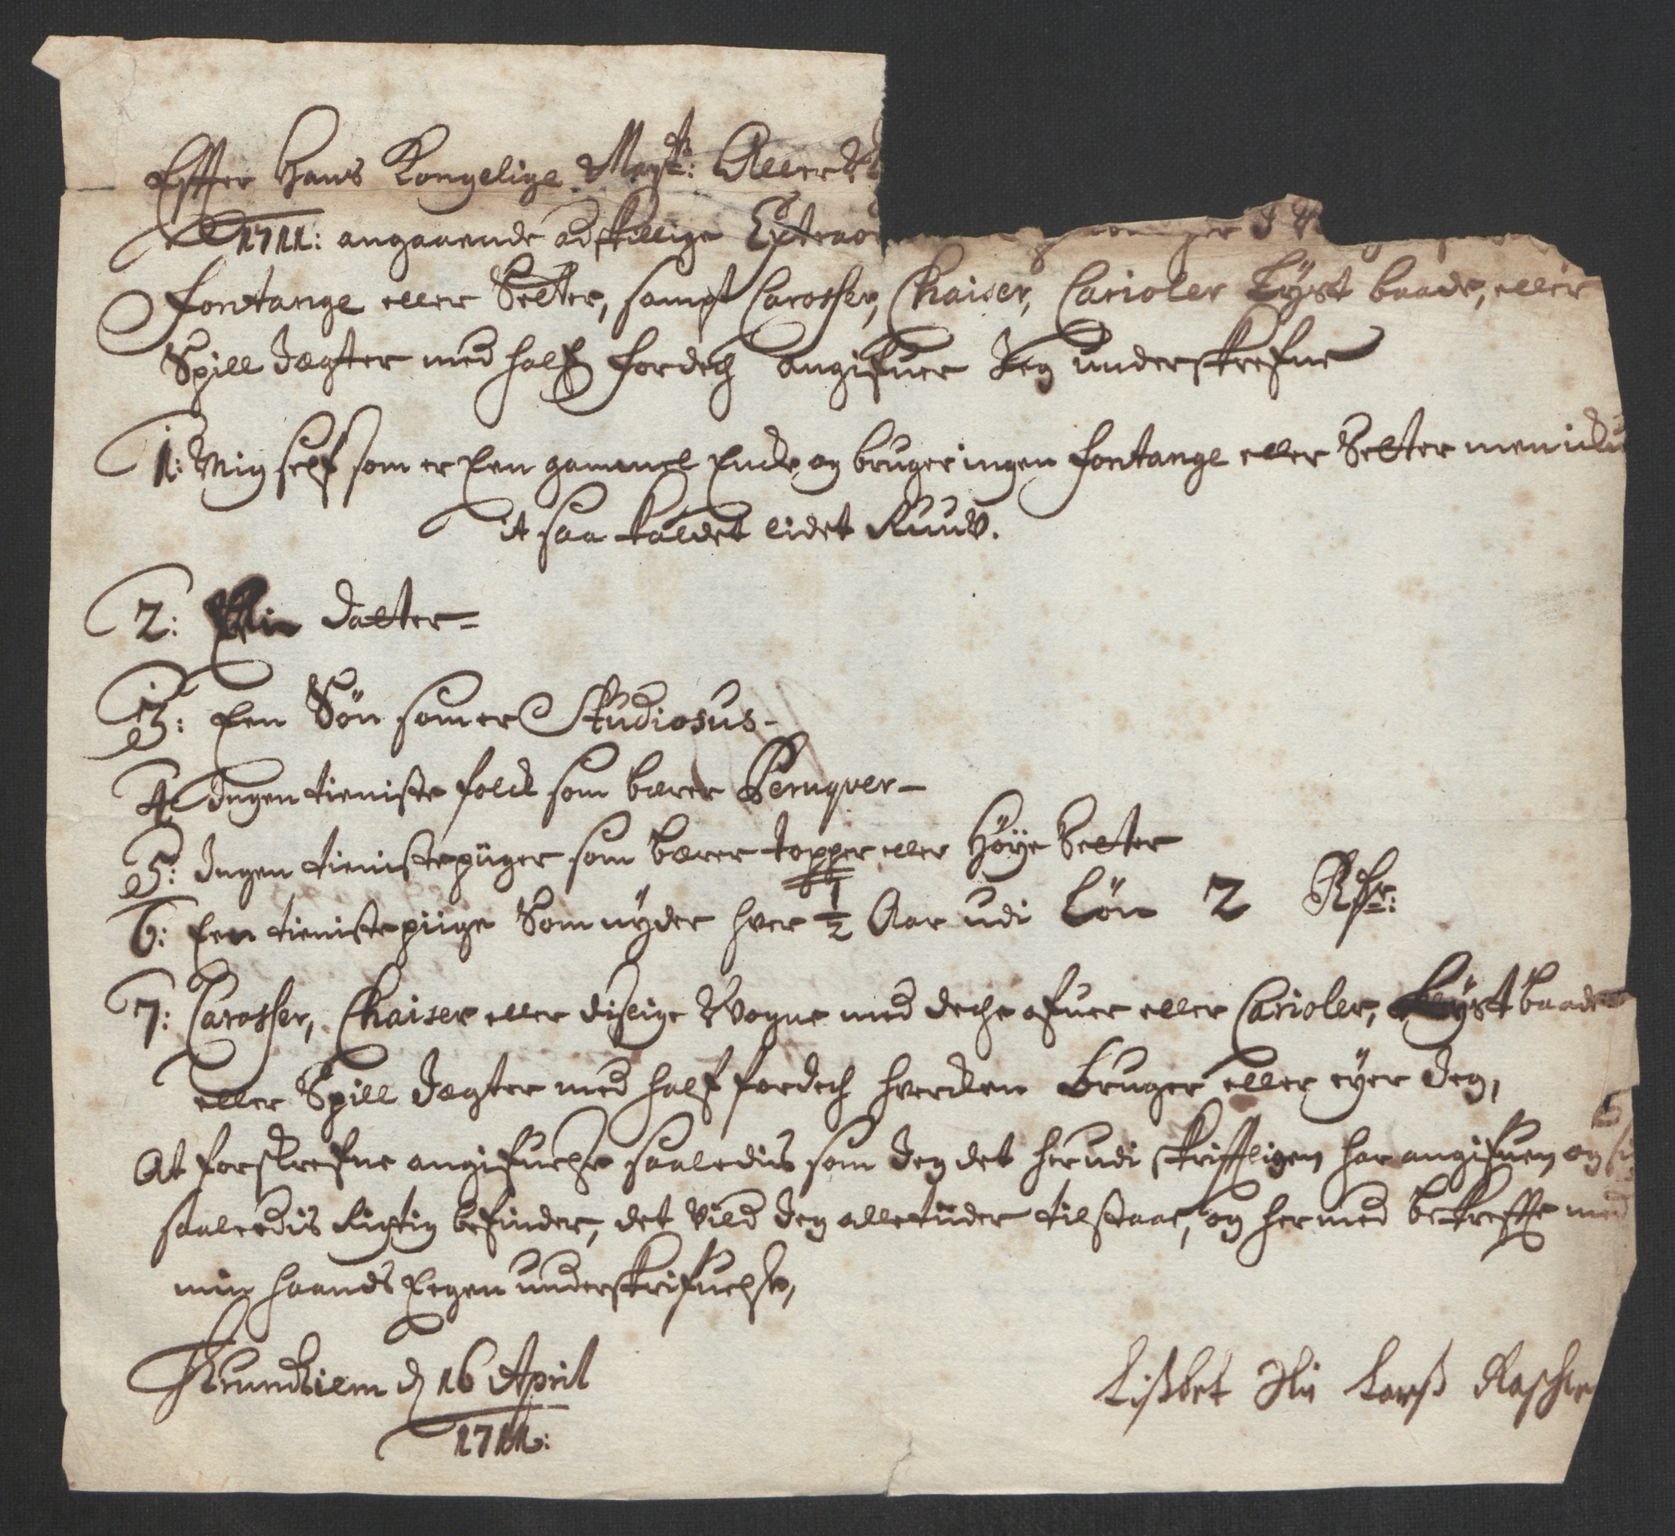 Effter Hans Kongelige Mayt: Allern
1711: angaaende adskillige Extraor
fontange eller Setter, sampt Carosser, Chaiser, Carioler Lyst baade, eller
Spill Jægter med half fordech angifuer Jeg underskrefne
1: Mig self som er Een gammel Encke og bruger ingen fontange eller Setter men ickun
it saa kaldet lidet Kuuv.
2: Min Datter=
3: Een Søn som er Studiosus-
4: Ingen tieniste folck som bærer Peruqver-
5: Ingen tienistepiiger som bærer topper eller Høye Setter
6: Een tienistepiige Som nyder hver 1/2 Aar udi Løn 2 Rdr:
7: Carosser, Chaiser eller dislige Vogne med deche ofuer eller Carioler, Lyst baade
eller Spill Jægter med half fordech hverken bruger eller eyer Jeg,
At forskrefne angifuelse saaledis som Jeg det herudi skriftligen har angifuen og
saaledis Rigtig befinder, det vill Jeg alletiider tilstaae, og hermed bekreffte med
min haands Eegen underskrifuelse,
Trundhiem d 16 April
1711:
Lißbet Sl Larß Rasch